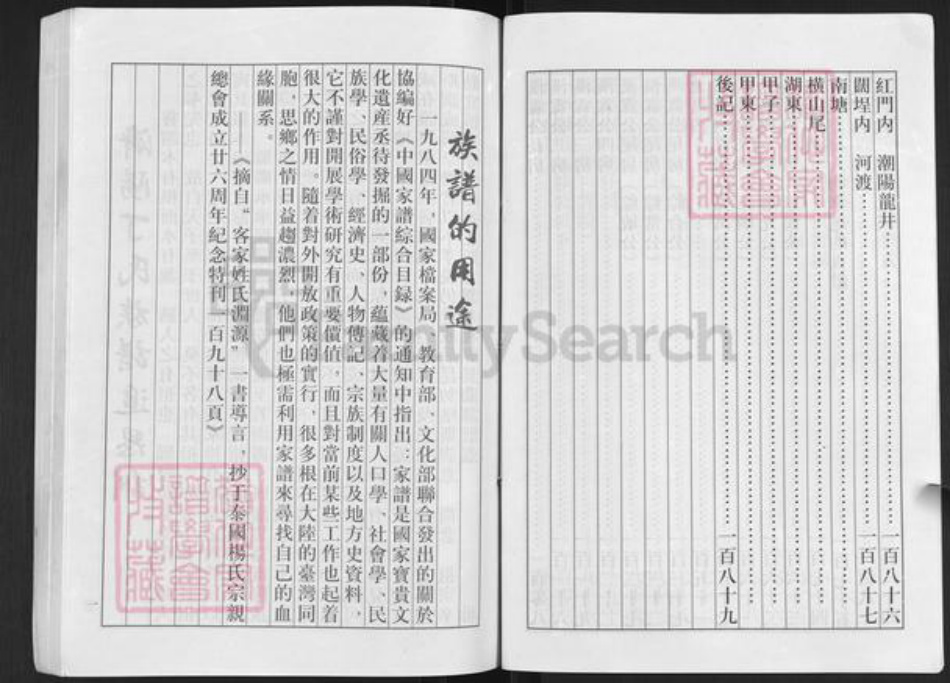 紅門內　潮陽龍井……一百八十六
閭埕內　河渡……一百八十七
南塘……
橫山尾……
湖東……
甲子……
甲東……
後記……一百八十九
族譜的用途
一九八四年，國家檔案局、教育部、文化部聯合發出的關於
協編好《中國家譜綜合目録》的通知中指出：家譜是國家寶貴文
化遺産丞待發掘的一部份，蘊藏着大量有關人口學、社會學、民
族學、民俗學、經濟史、人物傳記、宗族制度以及地方史資料，
它不謹對開展學術研究有重要價值，而且對當前某些工作也起着
很大的作用。隨着對外開放政策的實行，很多根在大陸的臺灣同
胞，思鄉之情日益趨濃烈，他們也極需利用家譜來尋找自己的血
緣關系。
——《摘自“客家姓氏淵源”一書導言，抄于泰國楊氏宗親
總會成立廿六周年紀念特刊一百九十八頁》
FamilySearch